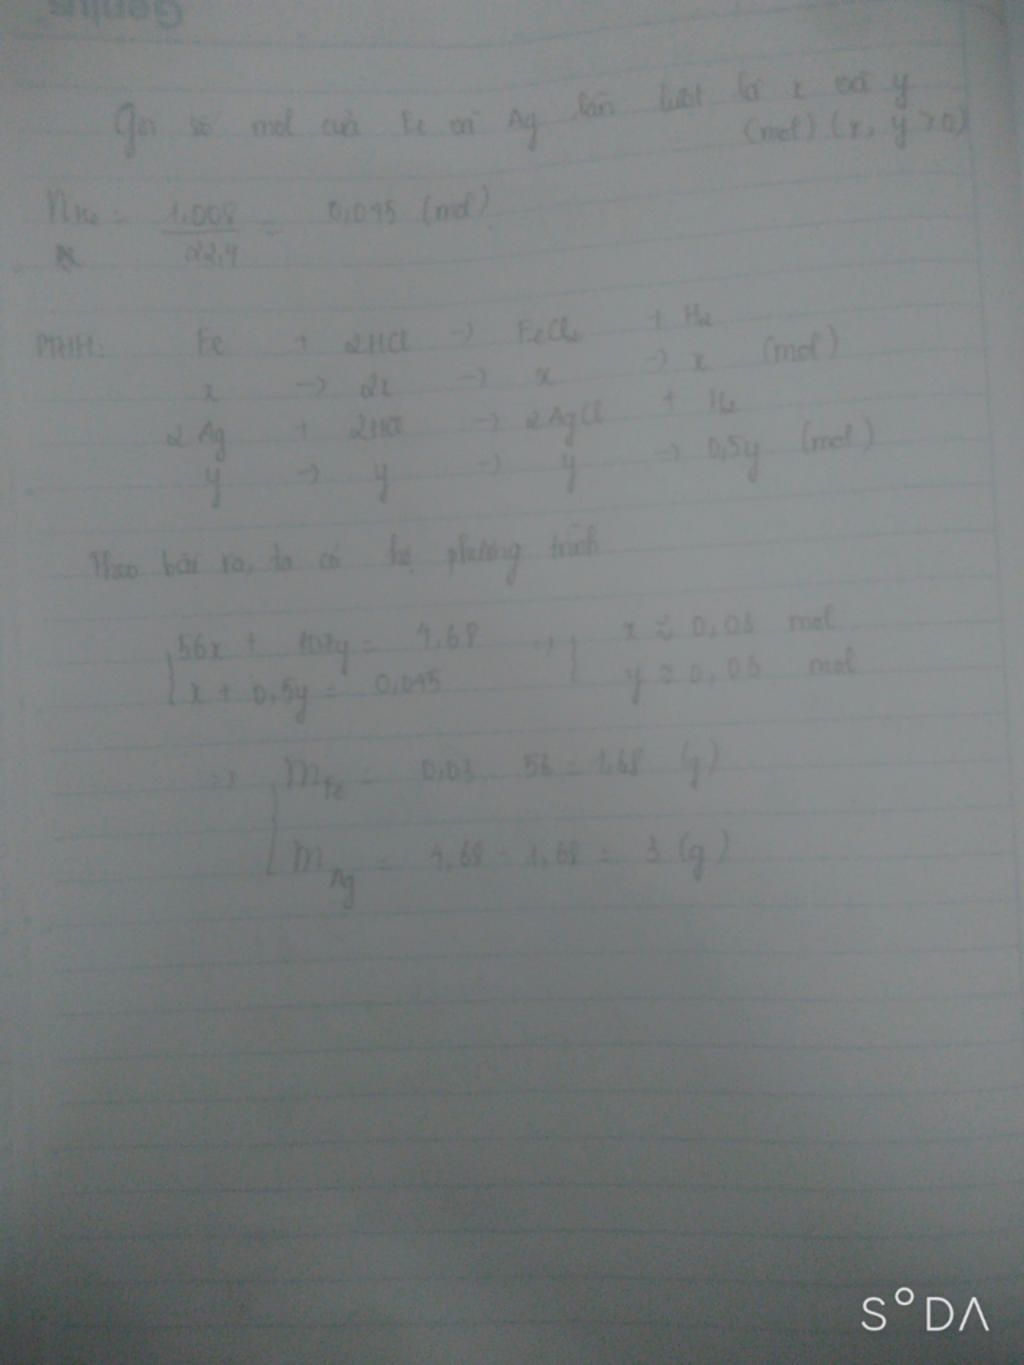 Genius
Gọi số mol của Fe và Ag lần lượt là x và y
(mol) (x, y > 0)
nH2 = 1,008 / 22,4 = 0,045 (mol)
PTHH: Fe + 2HCl -> FeCl2 + H2
x -> 2x -> x -> x (mol)
2Ag + 2HCl -> 2AgCl + H2
y -> y -> y -> 0,5y (mol)
Theo bài ra, ta có hệ phương trình
56x + 107y = 4,68 => x ≈ 0,03 mol
x + 0,5y = 0,045 y ≈ 0,03 mol
=> mFe = 0,03 . 56 = 1,68 (g)
mAg = 4,68 - 1,68 = 3 (g)
S°DA